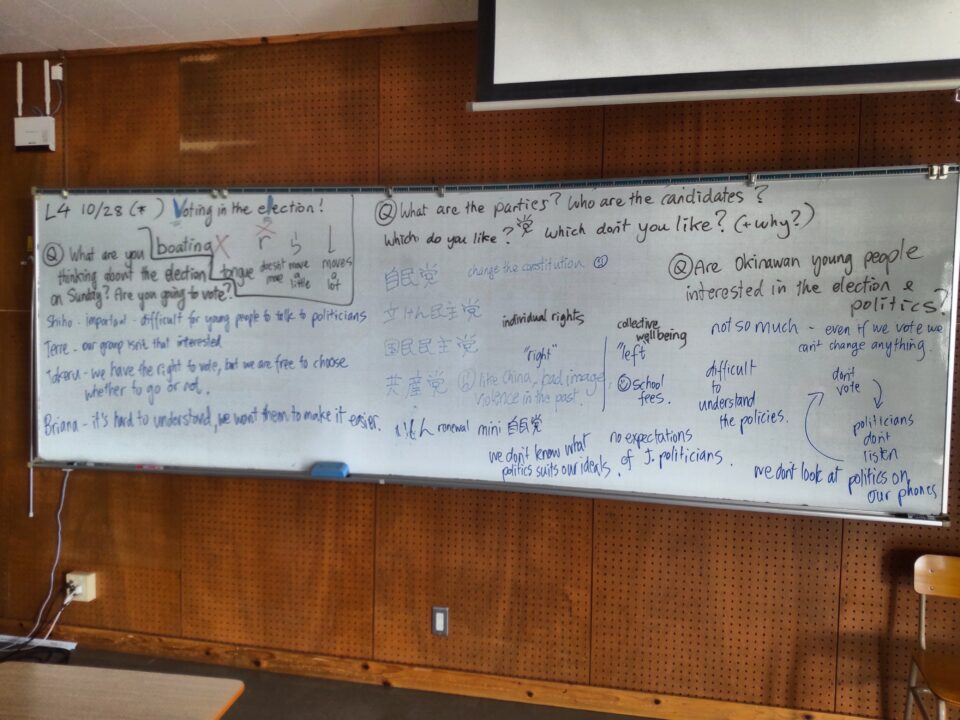 L4 10/28 (*) Voting in the election!
Q What are you
thinking about the election
on Sunday? Are you going to vote?
boating X
tongue
X
r
doesn't
move
ら
move
a
little
L
moves
a
lot
Shiho - important - difficult for young people to talk to politicians
Terre - our group isn't that interested
Takeru - we have the right to vote, but we are free to choose
whether to go or not.
Briana - it's hard to understand, we want them to make it easier.
Q What are the parties? Who are the candidates?
Which do you like? 党 Which don't you like? (+why?)
自民党 change the constitution
立けん民主党
国民民主党
共産党 like China, bad image,
violence in the past.
いしん renewal mini 自民党
individual rights
"right"
collective
wellbeing
"left
school
fees.
we don't know what
politics suits our ideals.
no expectations
of J. politicians.
Q Are Okinawan young people
interested in the election &
politics?
not so much - even if we vote we
can't change anything.
difficult
to
understand
the policies.
don't
vote
politicians
don't
listen
we don't look at politics on
our phones